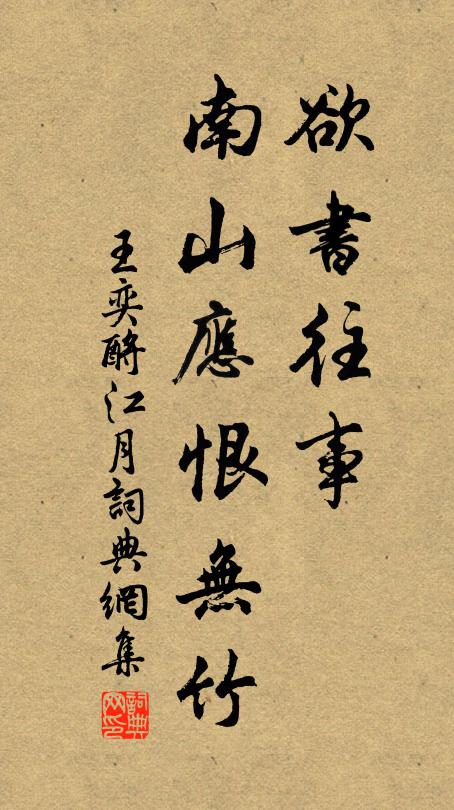 欲書往事
南山應恨無竹
王奕酹江月詞典網集
詞典网印